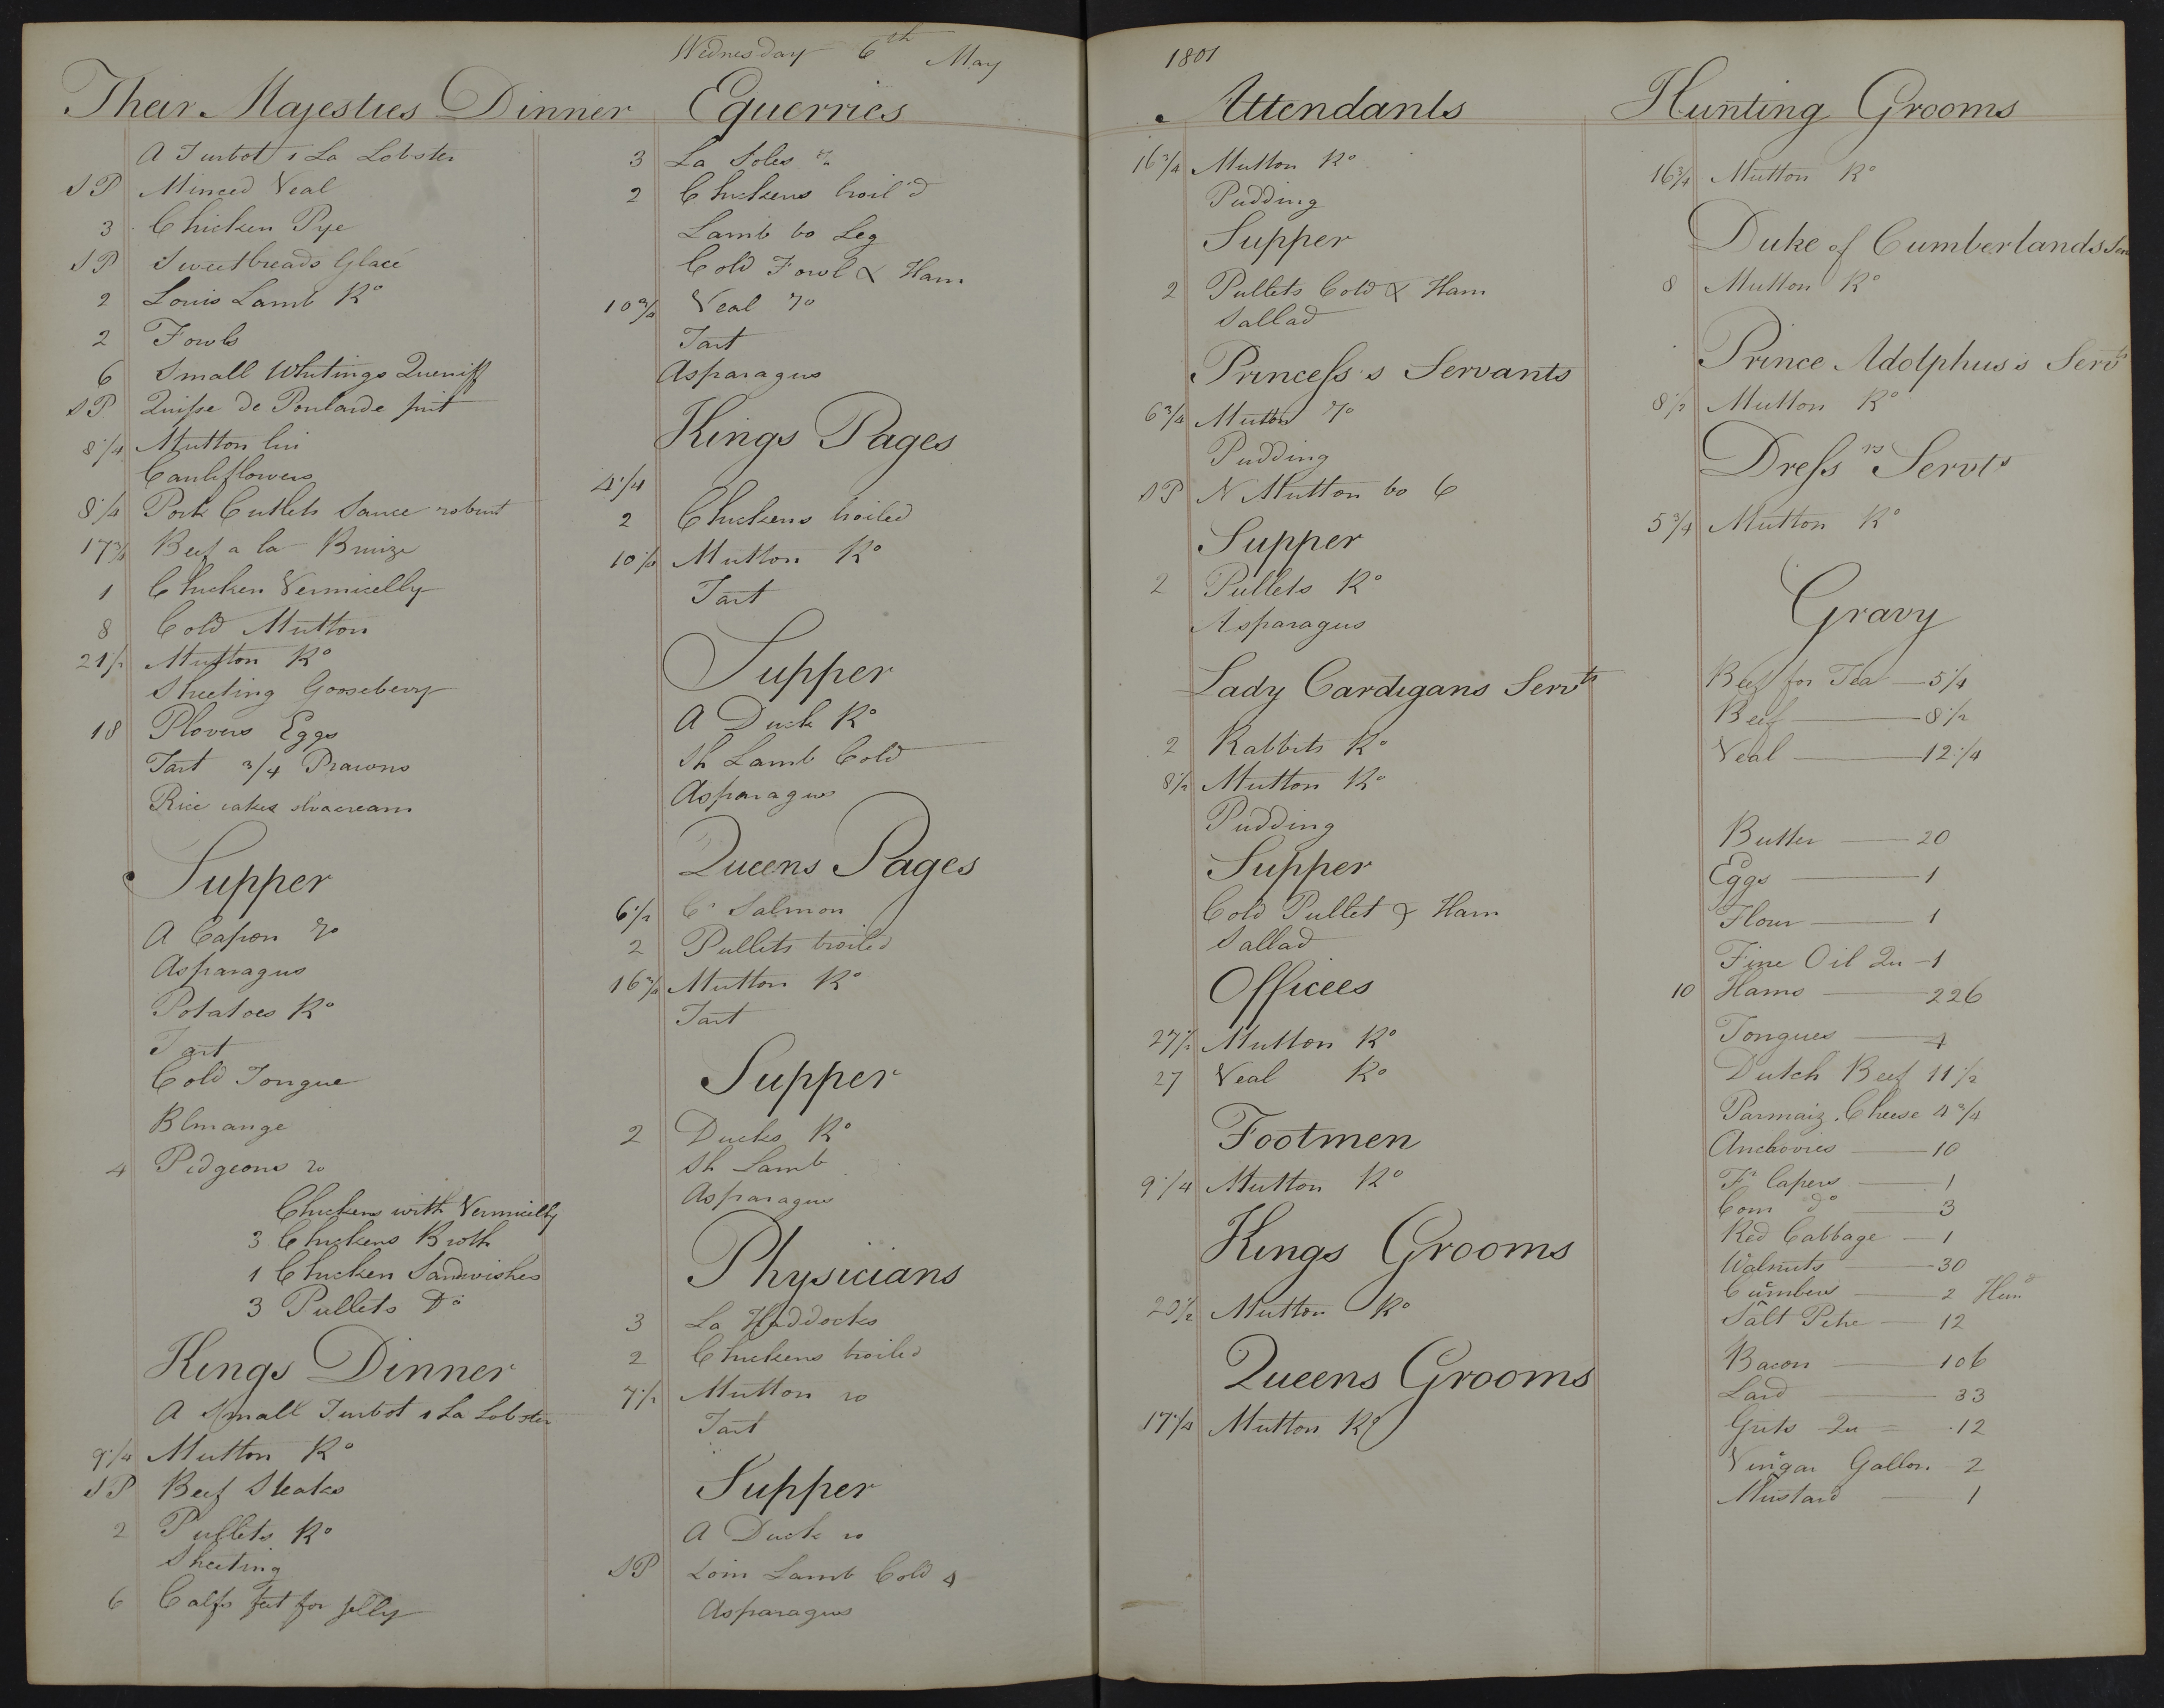 Wednesday 6th May 1801
Their Majesties Dinner
A Turbot 1 La Lobster
SP Minced Veal
3 Chicken Pye
SP Sweetbreads Glacé
2 Louis Lamb Ro
2 Fowls
6 Small Whitings
SP de Poularde
8 1/4 Mutton
Cauliflowers
8 1/4 Pork Cutlets Sauce robust
17 3/4 Beef a la Braize
1 Chicken Vermicelly
8 Cold Mutton
21 1/2 Mutton Ro
Sheeting Gooseberry
18 Plovers Eggs
Tart 3/4 Prawns
Rice cakes
Supper
A Capon ro
Asparagus
Potatoes Ro
Tart
Cold Tongue
Blmange
4 Pidgeons ro
Chickens with Vermicelly
3 Chickens Broth
1 Chicken Sandwishes
3 Pullets Do
Kings Dinner
A Small Turbot 1 La Lobster
9 1/4 Mutton Ro
SP Beef Steaks
2 Pullets Ro
Sheeting
6 Calfs feet for Jelly
Equerries
3 La Soles
2 Chickens broil'd
Lamb bo Leg
Cold Fowl & Ham
10 3/4 Veal ro
Tart
Asparagus
Kings Pages
4 1/4
2 Chickens broiled
10 1/4 Mutton Ro
Tart
Supper
A Duck Ro
Sh Lamb Cold
Asparagus
Queens Pages
6 1/2 C Salmon
2 Pullets broiled
16 3/4 Mutton Ro
Tart
Supper
2 Ducks Ro
Sh Lamb
Asparagus
Physicians
3 La Haddocks
2 Chickens broiled
7 1/2 Mutton ro
Tart
Supper
A Duck ro
SP Loin Lamb Cold 4
Asparagus
Attendants
16 3/4 Mutton Ro
Pudding
Supper
2 Pullets Cold & Ham
Sallad
Princess's Servants
6 3/4 Mutton ro
Pudding
SP N Mutton bo 6
Supper
2 Pullets Ro
Asparagus
Lady Cardigans Servts
2 Rabbits Ro
8 1/2 Mutton Ro
Pudding
Supper
Cold Pullet & Ham
Sallad
Officees
27 1/2 Mutton Ro
27 Veal Ro
Footmen
9 1/4 Mutton Ro
Kings Grooms
20 1/2 Mutton Ro
Queens Grooms
17 1/4 Mutton Ro
Hunting Grooms
16 3/4 Mutton Ro
Duke of Cumberlands
8 Mutton Ro
Prince Adolphus's Servts
8 1/2 Mutton Ro
Dressrs Servts
5 3/4 Mutton Ro
Gravy
Beef for Tea — 5 1/4
Beef — 8 1/2
Veal — 12 1/4
Butter — 20
Eggs — 1
Flour — 1
Fine Oil Qu — 1
10 Hams — 226
Tongues — 4
Dutch Beef 11 1/2
Parmaiz. Cheese 4 3/4
Anchovies — 10
Fr Capers — 1
Com do — 3
Red Cabbage — 1
Walnuts — 30
Cumbers — 2 Hund
Salt Petre — 12
Bacon — 106
Lard — 33
Guts Qu — 12
Vinigar Gallon 2
Mustard — 1